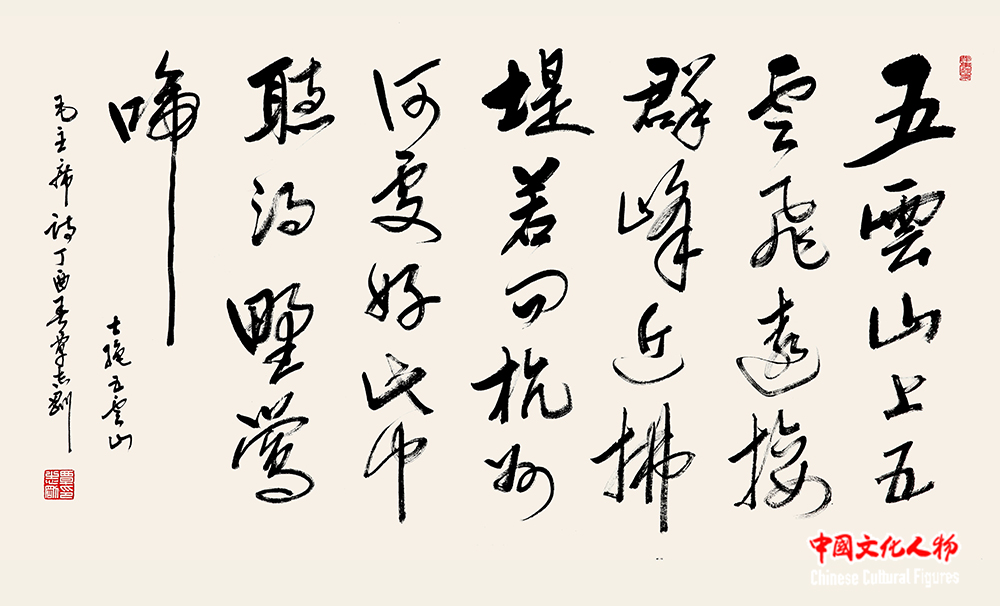 五雲山上五
云飛遠接
群峰近拂
堤若问杭州
何處好此中
聽得野鶯
啼
七絶五雲山
毛主席詩丁酉春覃志剛
中國文化人物
Chinese Cultural Figures